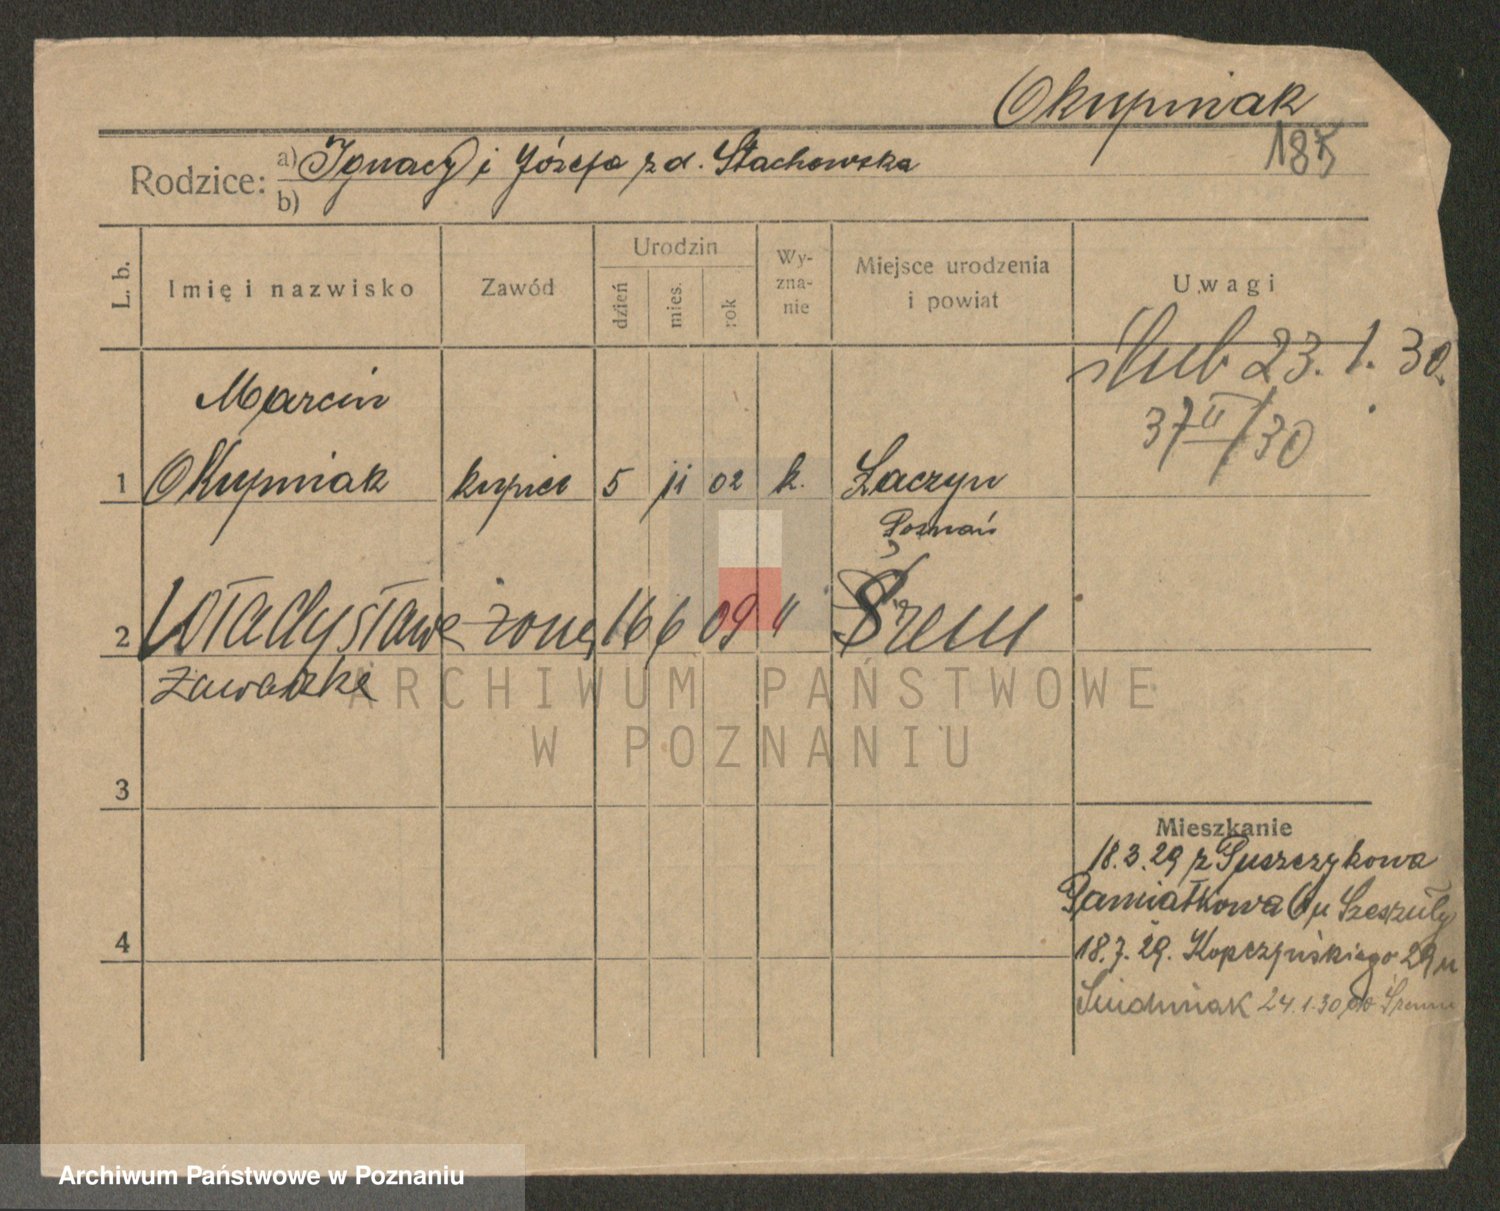 Okupniak
187
Rodzice: a) Ignacy i Józefa z d. Stachowska
b)
L. b. Imię i nazwisko Zawód Urodzin dzień mies. rok Wyznanie Miejsce urodzenia i powiat Uwagi
ślub 23. 1. 30.
37 II/30
Marcin
1 Okupniak kupiec 5 11 02 k. Łaczyn
Poznań
2 Władysława żona 16 6 09 " Śrem
Zawadzka
3
4
Mieszkanie
18.3.29 z Puszczykowa
Pamiątkowa 6 u Szeszuły
18.7.29. Kopczyńskiego 29 u
24.1.30 do Śremu
ARCHIWUM PAŃSTWOWE
W POZNANIU
Archiwum Państwowe w Poznaniu